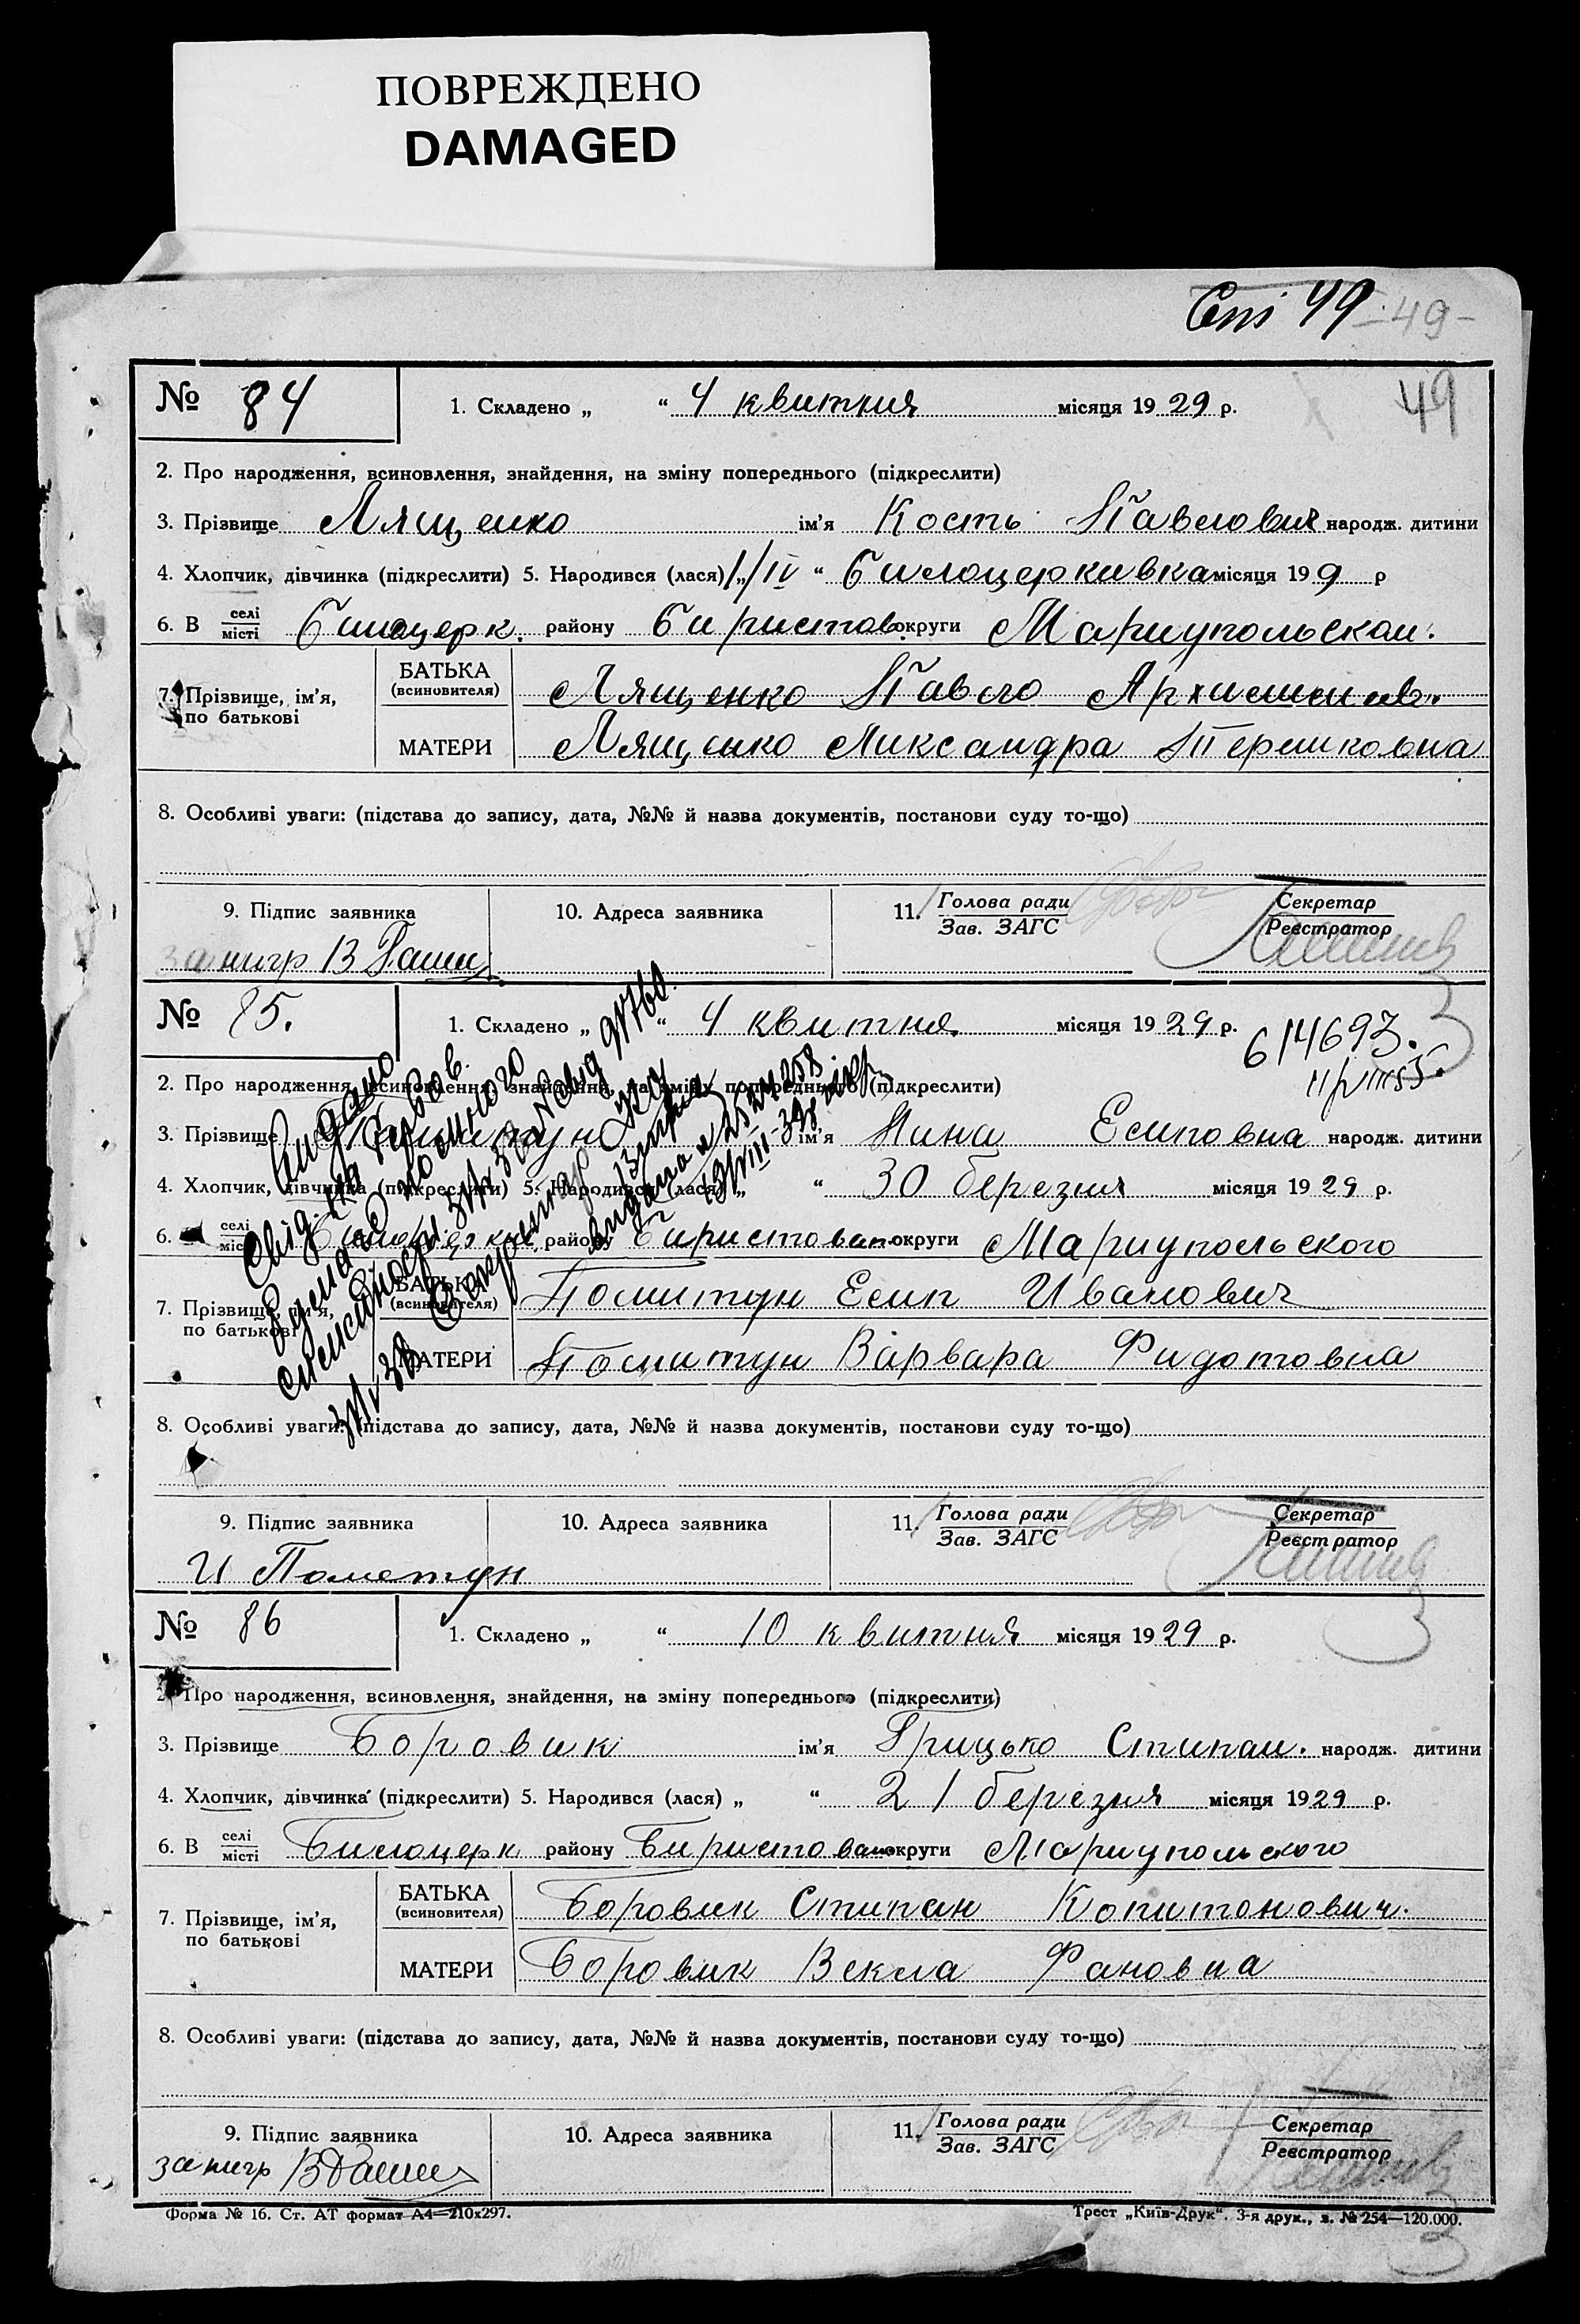 ПОВРЕЖДЕНО
DAMAGED
49 -49-
49
№ 84 1. Складено „ “ 4 квитня місяця 1929 р.
2. Про народження, всиновлення, знайдення, на зміну попереднього (підкреслити)
3. Прізвище Лященко ім'я Кость Павлович народж. дитини
4. Хлопчик, дівчинка (підкреслити) 5. Народився (лася) „1/IV “ Билоцеркивка місяця 199 р
6. В селі/місті Билоцерк. району Биристов. округи Мариупольскои.
7. Прізвище, ім'я, по батькові БАТЬКА (всиновителя) Лященко Павло
МАТЕРИ Лященко Аександра
8. Особливі уваги: (підстава до запису, дата, №№ й назва документів, постанови суду то-що)
9. Підпис заявника 10. Адреса заявника 11. Голова ради/Зав. ЗАГС Секретар/Реєстратор
за нигр В
№ 85. 1. Складено „ “ 4 квитня місяця 1929 р.
614693.
2. Про народження, всиновлення, знайдення, на зміну попереднього (підкреслити)
3. Прізвище Помитун ім'я Нина Есиповна народж. дитини
4. Хлопчик, дівчинка (підкреслити) 5. Народився (лася) „ “ 30 березня місяця 1929 р.
6. селі/міс району Биристован округи Мариупольского
7. Прізвище, ім'я, по батькові БАТЬКА (всиновителя) Помитун Есип Иванович
МАТЕРИ Помитун Варвара Фидотовна
8. Особливі уваги: (підстава до запису, дата, №№ й назва документів, постанови суду то-що)
9. Підпис заявника 10. Адреса заявника 11. Голова ради/Зав. ЗАГС Секретар/Реєстратор
И Пометун
№ 86 1. Складено „ “ 10 квитня місяця 1929 р.
2. Про народження, всиновлення, знайдення, на зміну попереднього (підкреслити)
3. Прізвище Боровик ім'я Грицько Стипан. народж. дитини
4. Хлопчик, дівчинка (підкреслити) 5. Народився (лася) „ “ 21 березня місяця 1929 р.
6. В селі/місті Билоцерк району Биристован округи Мариупольского
7. Прізвище, ім'я, по батькові БАТЬКА (всиновителя) Боровик Стипан Копитонович.
МАТЕРИ Боровик Векла Фановна
8. Особливі уваги: (підстава до запису, дата, №№ й назва документів, постанови суду то-що)
9. Підпис заявника 10. Адреса заявника 11. Голова ради/Зав. ЗАГС Секретар/Реєстратор
за нигр
Форма № 16. Ст. АТ формат А4—210х297. Трест „Київ-Друк“. 3-я друк., з. № 254—120.000.